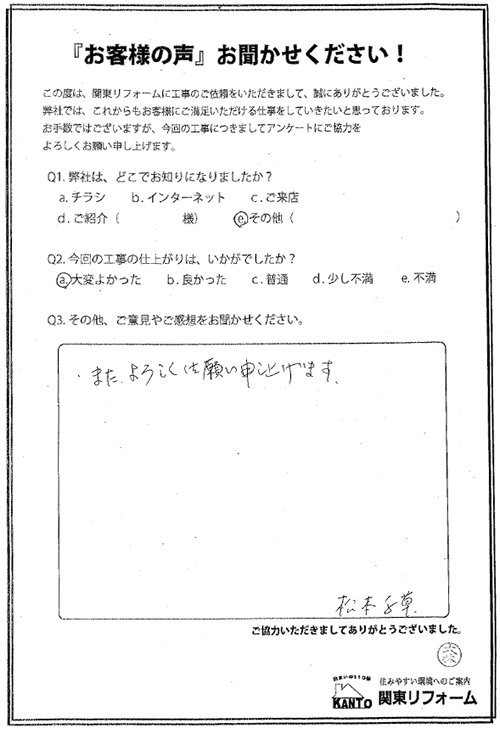 『お客様の声』お聞かせください！
この度は、関東リフォームに工事のご依頼をいただきまして、誠にありがとうございました。
弊社では、これからもお客様にご満足いただける仕事をしていきたいと思っております。
お手数ではございますが、今回の工事につきましてアンケートにご協力を
よろしくお願い申し上げます。
Q1. 弊社は、どこでお知りになりましたか？
a. チラシ b. インターネット c. ご来店
d. ご紹介（ 様） e. その他（ ）
Q2. 今回の工事の仕上がりは、いかがでしたか？
a. 大変よかった b. 良かった c. 普通 d. 少し不満 e. 不満
Q3. その他、ご意見やご感想をお聞かせください。
・また、よろしくお願い申し上げます。
松本千草
ご協力いただきましてありがとうございました。
住みやすい環境へのご案内
KANTO 関東リフォーム